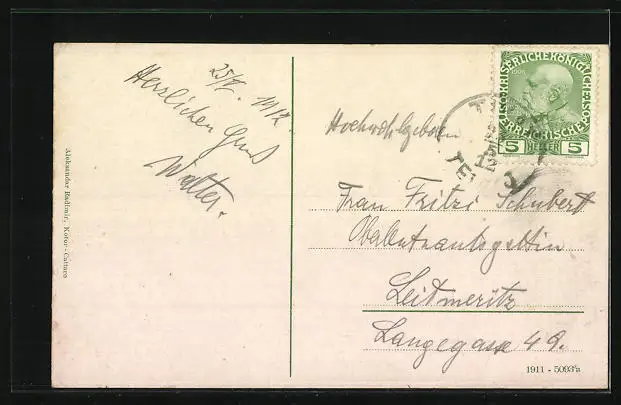 25/V. 1912.
Herzlichen Gruß
Walter.
Aleksandar Radimir, Kotor-Cattaro
Hochwohlgeboren
Frau Fritzi Schubert
Leitmeritz
Langegasse 49.
1908
KAISERLICHE KÖNIGLICHE ÖSTERREICHISCHE POST
5 HELLER 5
1911 - 5093